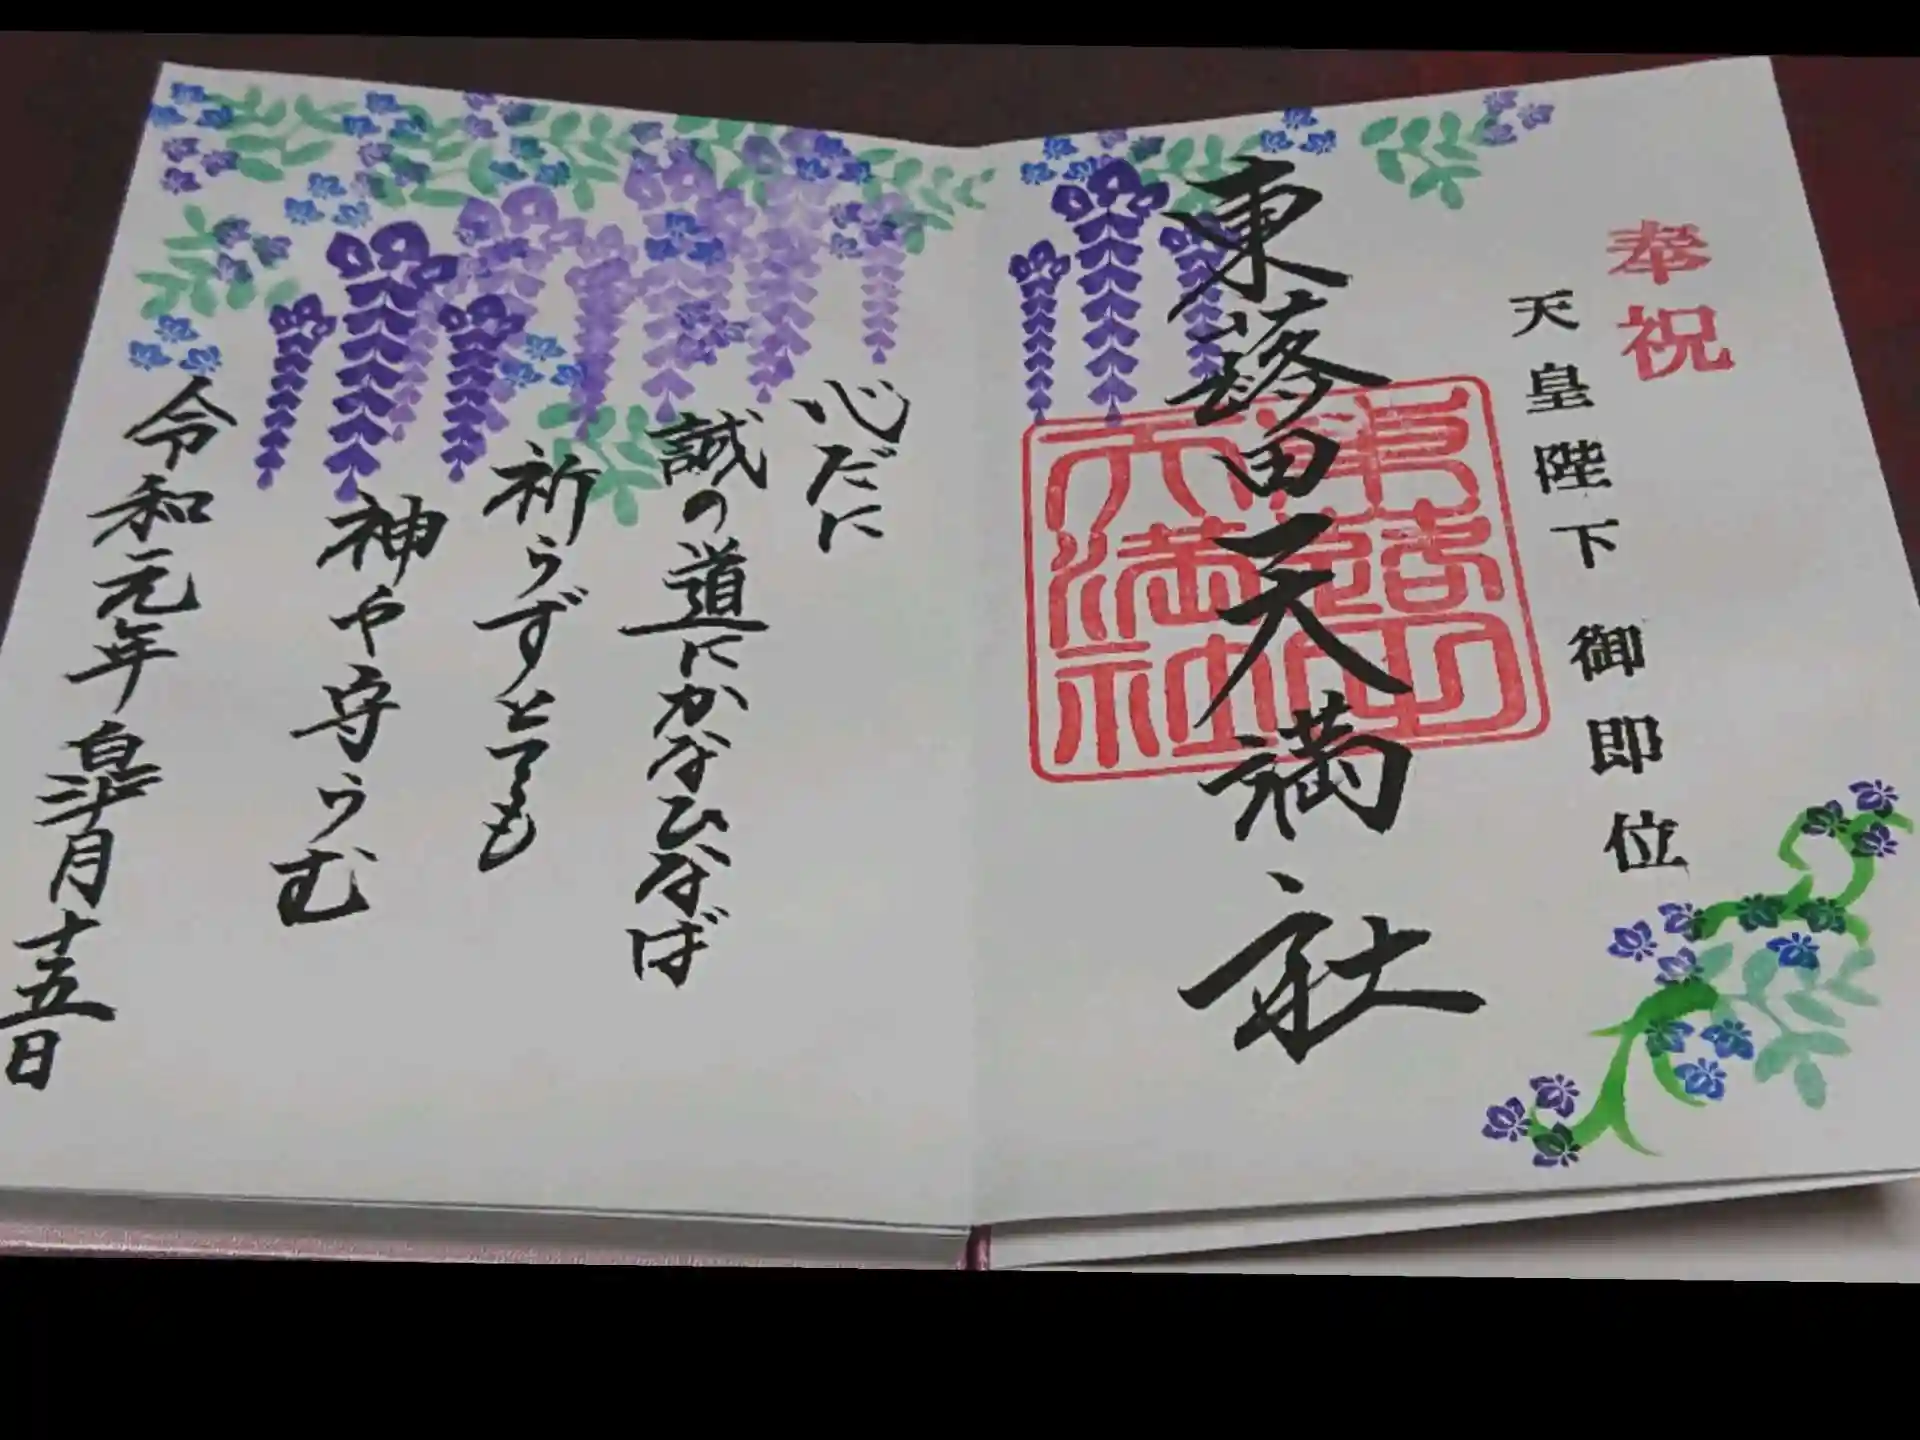 奉祝
天皇陛下 御即位
東蕗田天満社
東蕗田
天満社
心だに
誠の道にかなひなば
祈らずとても
神や守らむ
令和元年皐月十五日